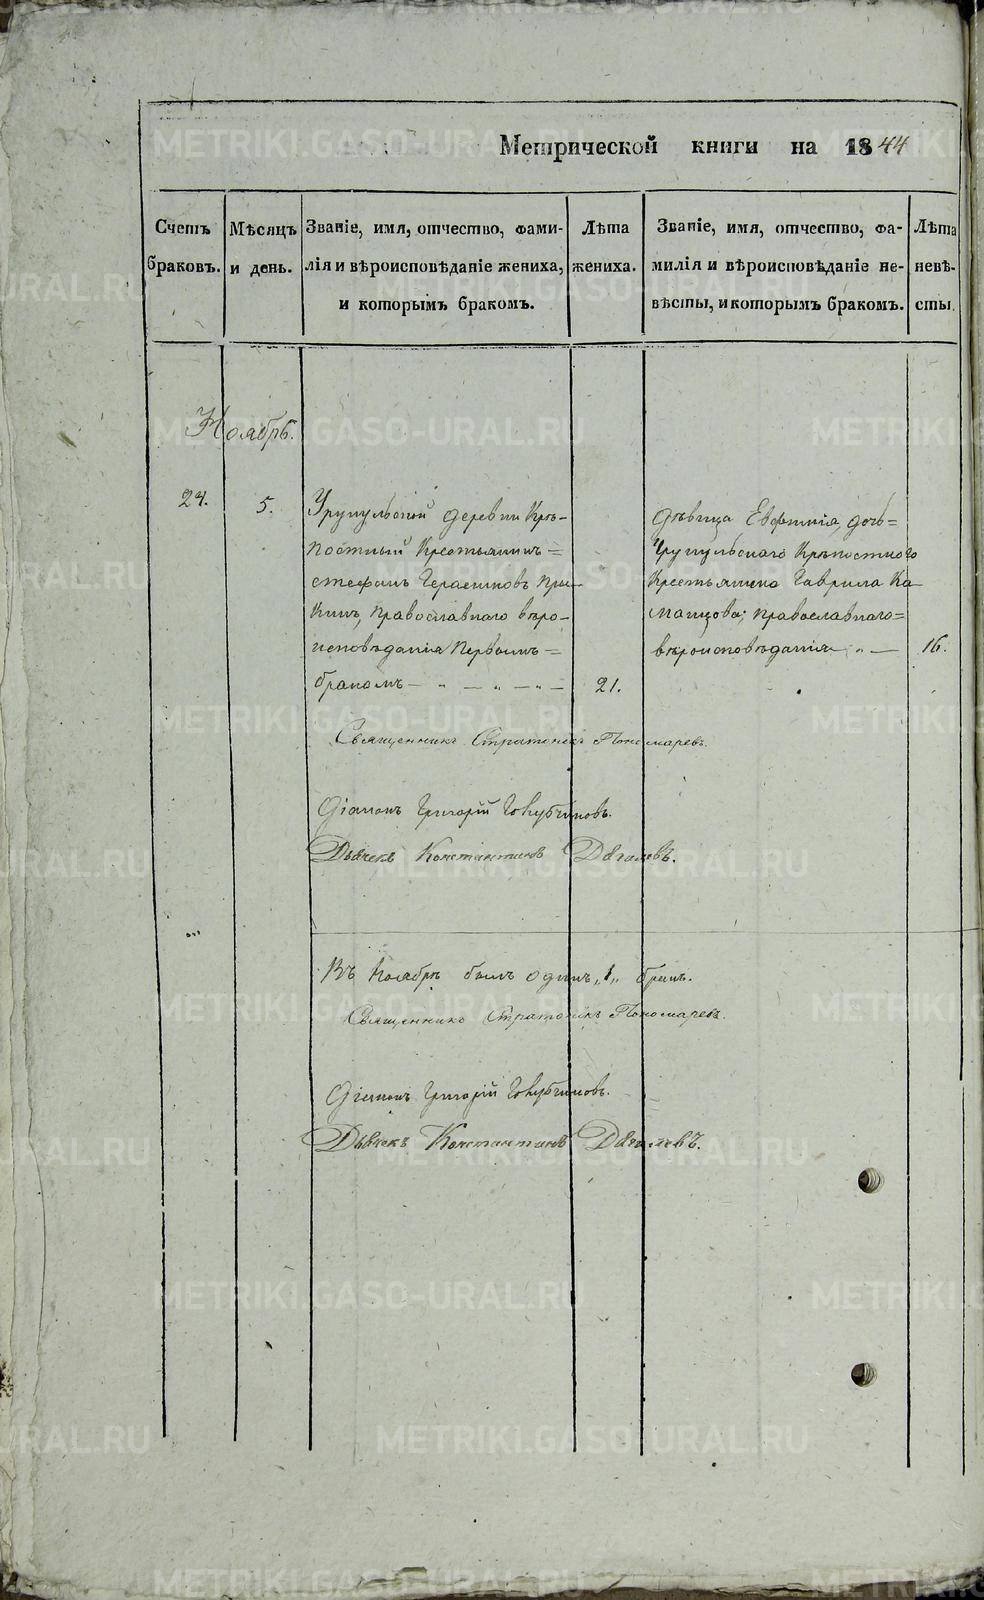 Метрической книги на 1844
Счетъ браковъ.
Мѣсяцъ и день.
Званіе, имя, отчество, фами-
лія и вѣроисповѣданіе жениха,
и которымъ бракомъ.
Лѣта
жениха.
Званіе, имя, отчество, фа-
милія и вѣроисповѣданіе не-
вѣсты, и которымъ бракомъ.
Лѣта
невѣ-
сты.
Ноябрь.
24.
5.
деревни Крѣ-
постный Крестьянинъ=
Стефанъ Герасимовъ
Православнаго вѣро-
исповѣданія Первымъ=
бракомъ
21.
дѣвица Евфимія, дочь=
Крѣпостного
Крестьянина Гаврила Ка-
манцова; православнаго=
вѣроисповѣданія
16.
Священникъ Стратоникъ Пономаревъ.
Діаконъ Григорій
Дьячекъ Константинъ Дягилевъ.
Въ Ноябрѣ былъ одинъ „1„ бракъ.
Священникъ Стратоникъ Пономаревъ.
Діаконъ Григорій
Дьячекъ Константинъ Дягилевъ.
METRIKI.GASO-URAL.RU